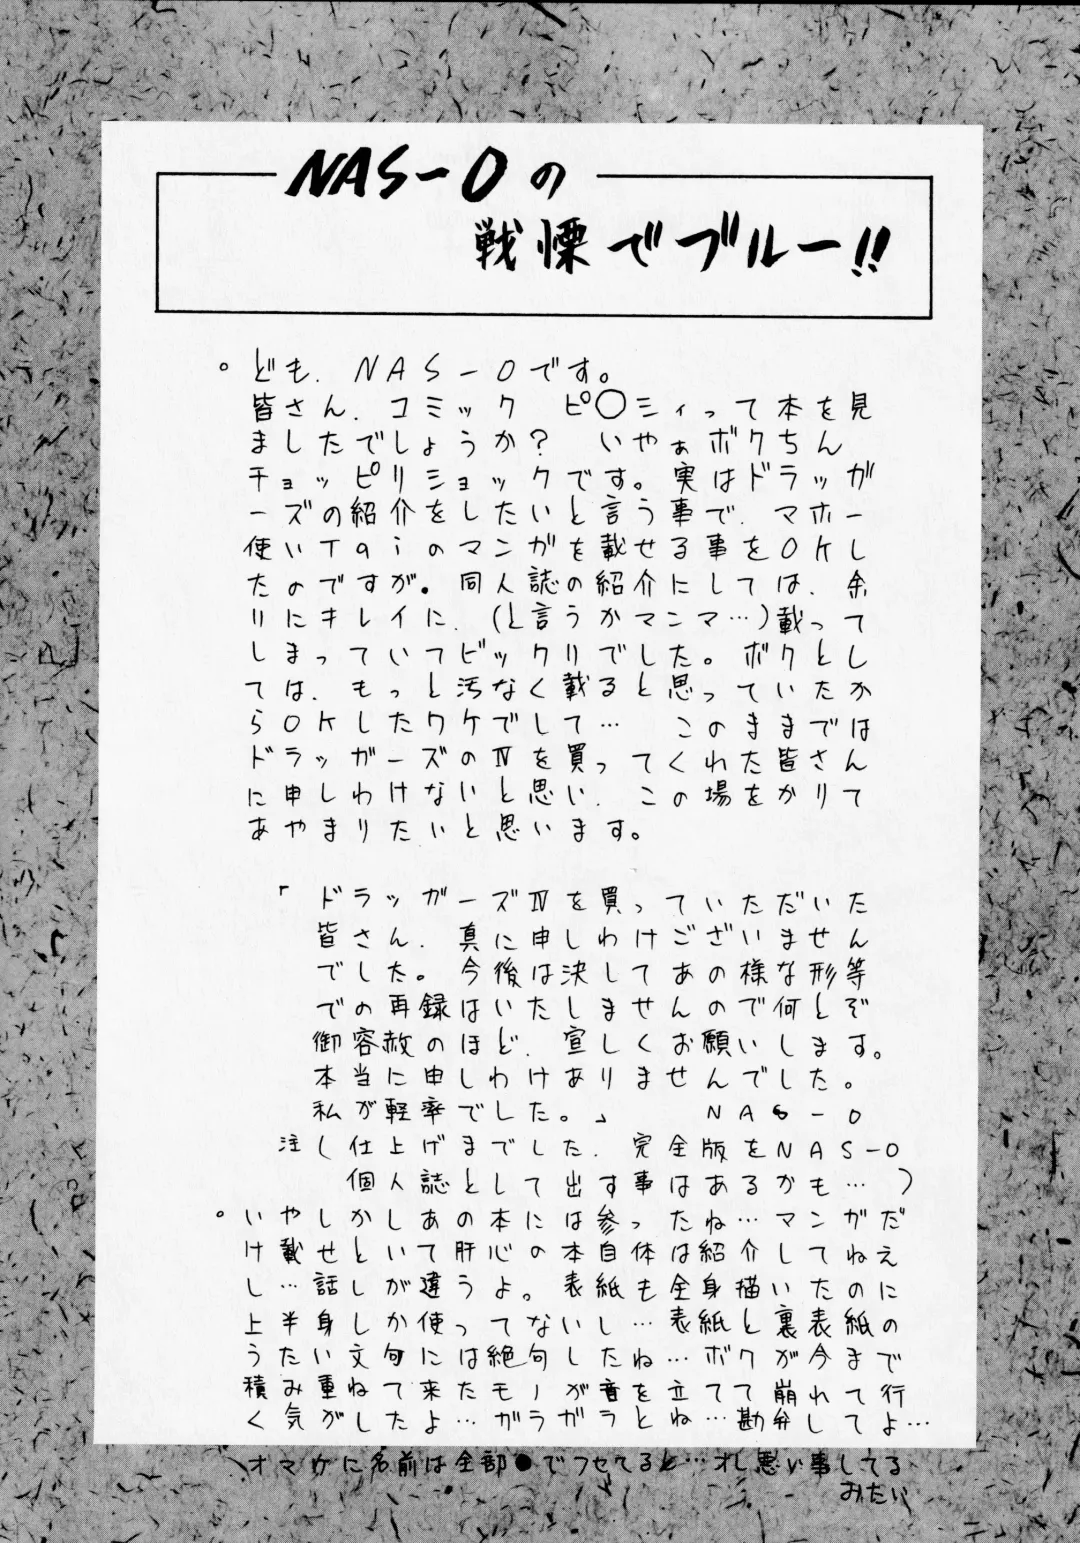 NAS-Oの
戦慄でブルー!!
。ども、NAS-Oです。
皆さん、コミック ピ〇シィって本を見
ましたでしょうか? いやぁボクちん
チョッピリショックです。実はドラッガ
ーズの紹介をしたいと言う事で、マホー
使いTaiのマンガを載せる事をOKし
たのですが。同人誌の紹介にしては、余
りにキレイに、(と言うかマンマ…)載って
しまっていてビックリでした。ボクとし
ては、もっと汚なく載ると思っていたか
らOKしたワケでして… このままでは
ドラッガーズのⅣを買ってくれた皆さん
に申しわけないと思い、この場をかりて
あやまりたいと思います。
「ドラッガーズⅣを買っていただいた
皆さん、真に申しわけございません
でした。今後は決してあの様な形等
での再録はいたしませんので何とぞ
御容赦のほど、宜しくお願いします。
本当に申しわけありませんでした。
私が軽率でした。」 NAS-O
注(仕上げまでした、完全版をNAS-O
個人誌として出す事はあるかも…)
。いやしかしあの本には参ったね…マンガだ
け載せといて肝心の本自体は紹介してねえ
し…話しが違うよ。表紙も全身描いたのに
上半身しか使ってないし…表紙と裏表紙の
うたい文句には絶句したね…ボクが今まで
積み重ねて来たモノが音を立てて崩れて行
く気がしたよ…ガラガラとね…勘弁してよ…
オマケに名前は全部●でフセてると…オレ悪い事してる
みたい